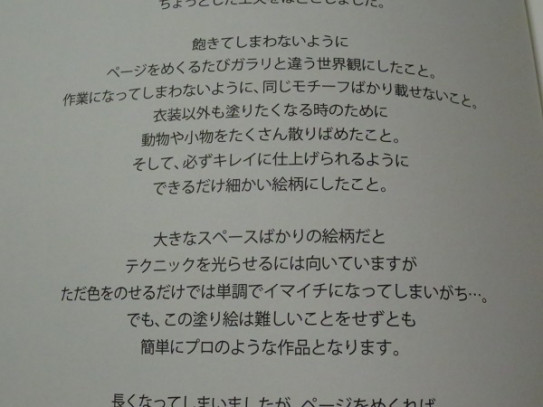 ちょっとした工夫をほどこしました。
飽きてしまわないように
ページをめくるたびガラリと違う世界観にしたこと。
作業になってしまわないように、同じモチーフばかり載せないこと。
衣装以外も塗りたくなる時のために
動物や小物をたくさん散りばめたこと。
そして、必ずキレイに仕上げられるように
できるだけ細かい絵柄にしたこと。
大きなスペースばかりの絵柄だと
テクニックを光らせるには向いていますが
ただ色をのせるだけでは単調でイマイチになってしまいがち…。
でも、この塗り絵は難しいことをせずとも
簡単にプロのような作品となります。
長くなってしまいましたが、ページをめくれば